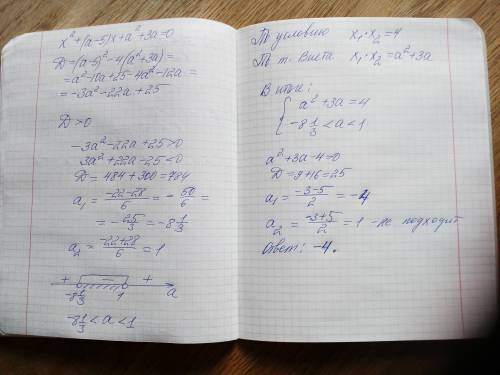 x² + (a-5)x + a² + 3a = 0
D = (a-5)² - 4(a² + 3a) =
= a² - 10a + 25 - 4a² - 12a =
= -3a² - 22a + 25
D > 0
-3a² - 22a + 25 > 0
3a² + 22a - 25 < 0
D = 484 + 300 = 784
a₁ = (-22-28)/6 = - 50/6 =
= - 25/3 = -8 1/3
a₂ = (-22+28)/6 = 1
+ - +
-8 1/3 1 a
-8 1/3 < a < 1
По условию x₁·x₂ = 4
По т. Виета x₁·x₂ = a² + 3a
В итоге:
{ a² + 3a = 4
-8 1/3 < a < 1
a² + 3a - 4 = 0
D = 9 + 16 = 25
a₁ = (-3-5)/2 = -4
a₂ = (-3+5)/2 = 1 - не подходит
Ответ: -4.